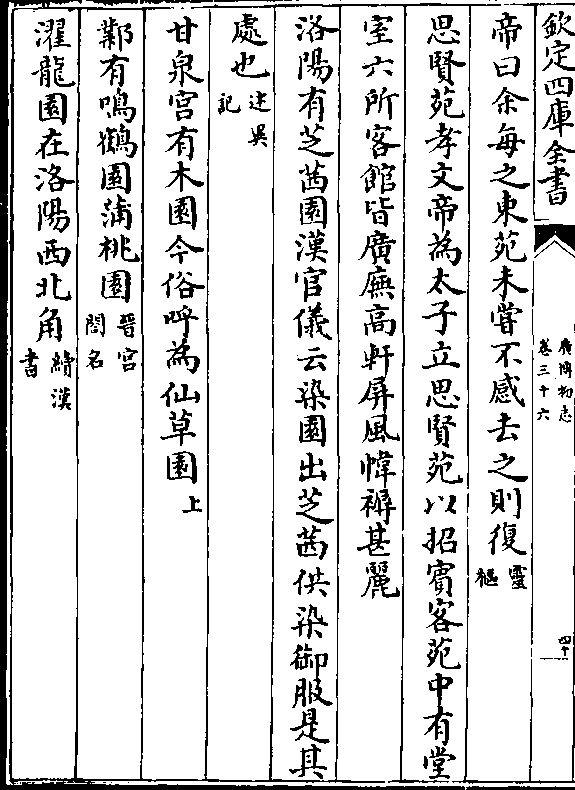 欽定四庫全書
廣博物志
卷三十六
四十
帝曰余每之東苑未嘗不感去之則復靈樞
思賢苑孝文帝為太子立思賢苑以招賓客苑中有堂
室六所客館皆廣廡高軒屏風幃褥甚麗
洛陽有芝茜園漢官儀云染園出芝茜供染御服是其
處也述異記
甘泉宮有木園今俗呼為仙草園上
鄴有鳴鶴園蒲桃園晉宮閣名
濯龍園在洛陽西北角續漢書